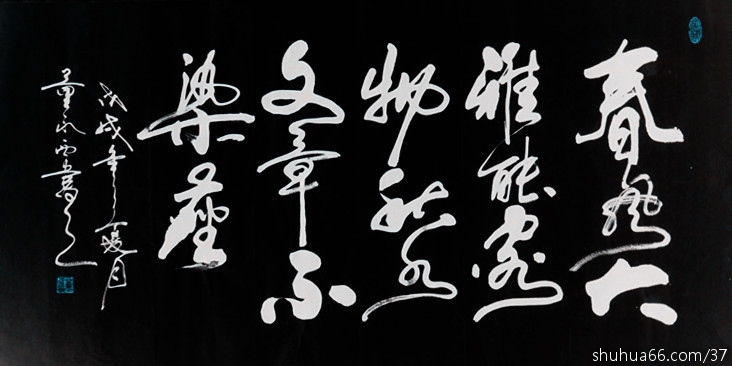 春風大
雅能容
物秋水
文章不
染塵
戊戌年夏月
書之
shuhua66.com/37